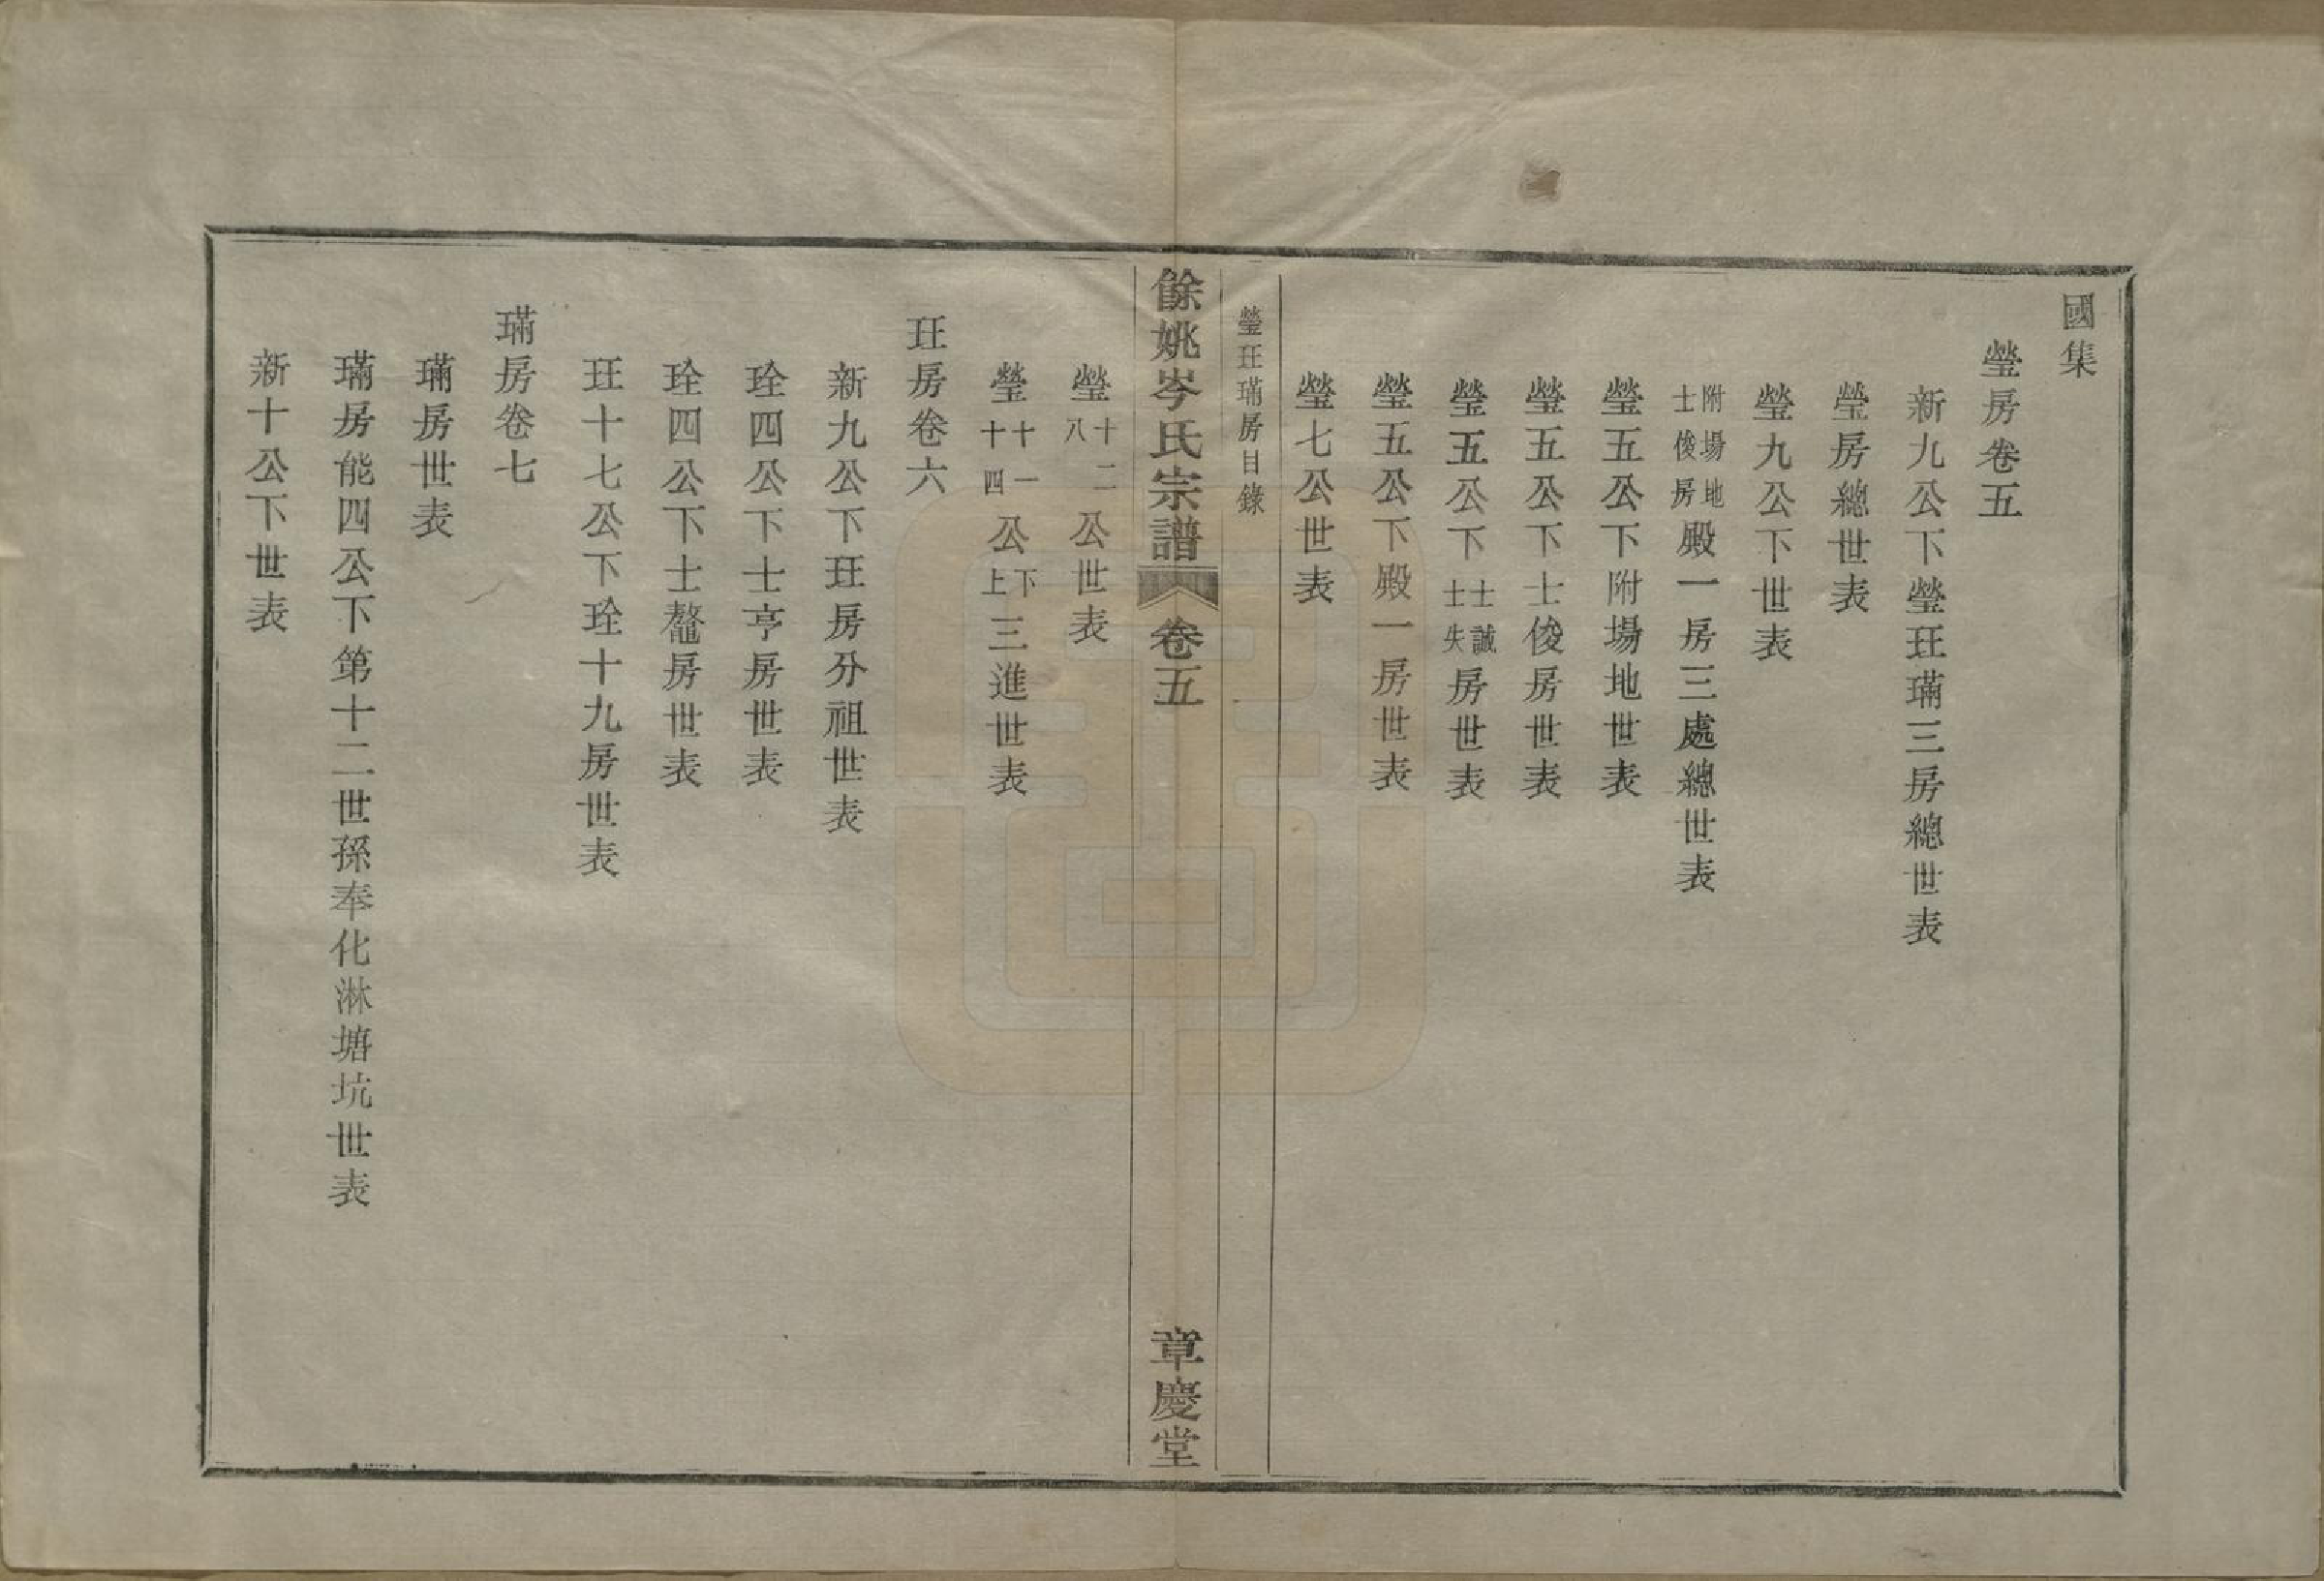 國集
瑩房卷五
新九公下瑩玨璊三房總世表
瑩房總世表
瑩九公下世表
附場地士俊房殿一房三處總世表
瑩五公下附場地世表
瑩五公下士俊房世表
瑩五公下士誠士失房世表
瑩五公下殿一房世表
瑩七公世表
瑩玨璊房目錄
餘姚岑氏宗譜 卷五 章慶堂
瑩十二八公世表
瑩十一十四公下上三進世表
玨房卷六
新九公下玨房分祖世表
珤四公下士亨房世表
珤四公下士鰲房世表
玨十七公下珤十九房世表
璊房卷七
璊房世表
璊房能四公下第十二世孫奉化淋塘坑世表
新十公下世表